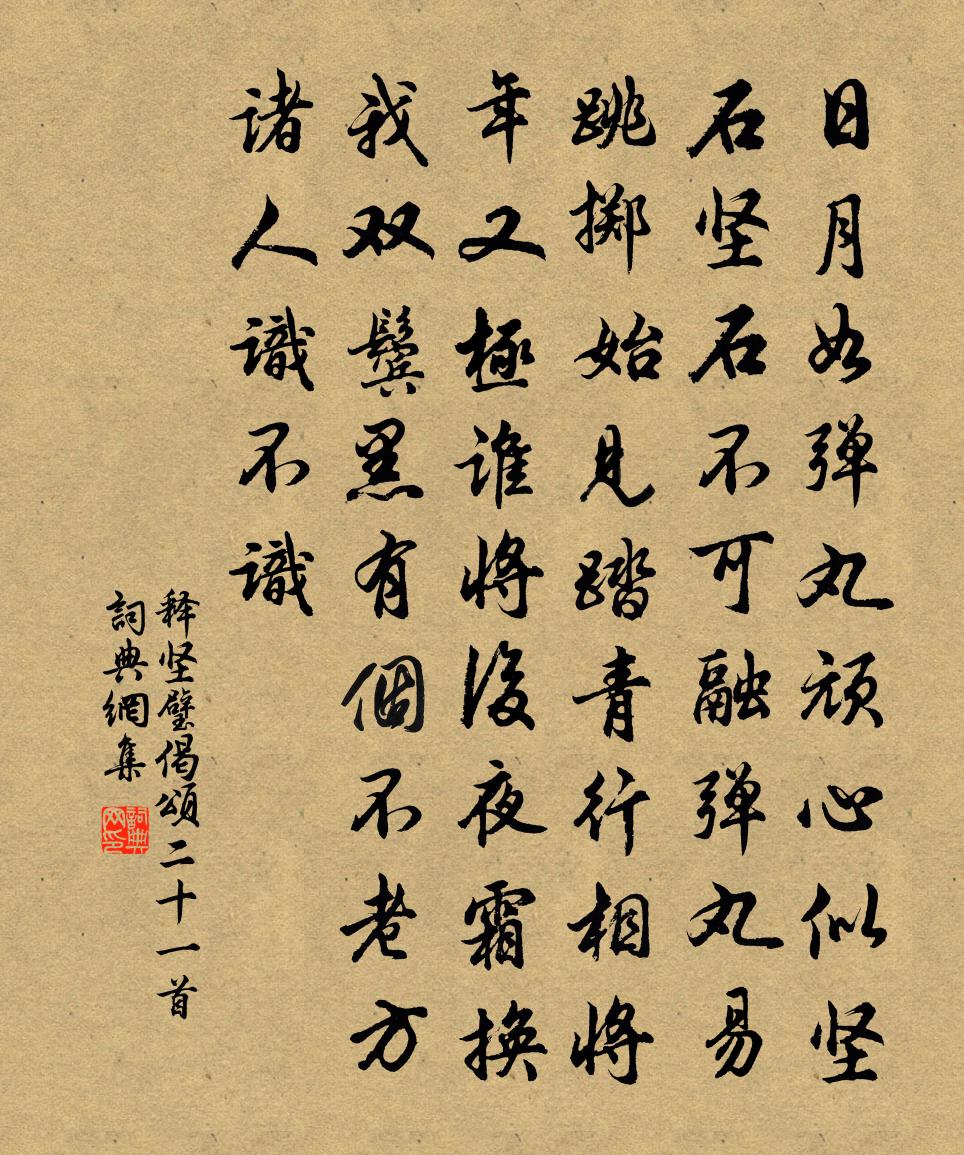 日月如弹丸顽心似坚
石坚石不可融弹丸易
跳掷始见踏青行相将
年又極谁将後夜霜换
我双鬓黑有個不老方
诸人識不識
释坚璧偈頌二十一首
詞典網集
詞典網印